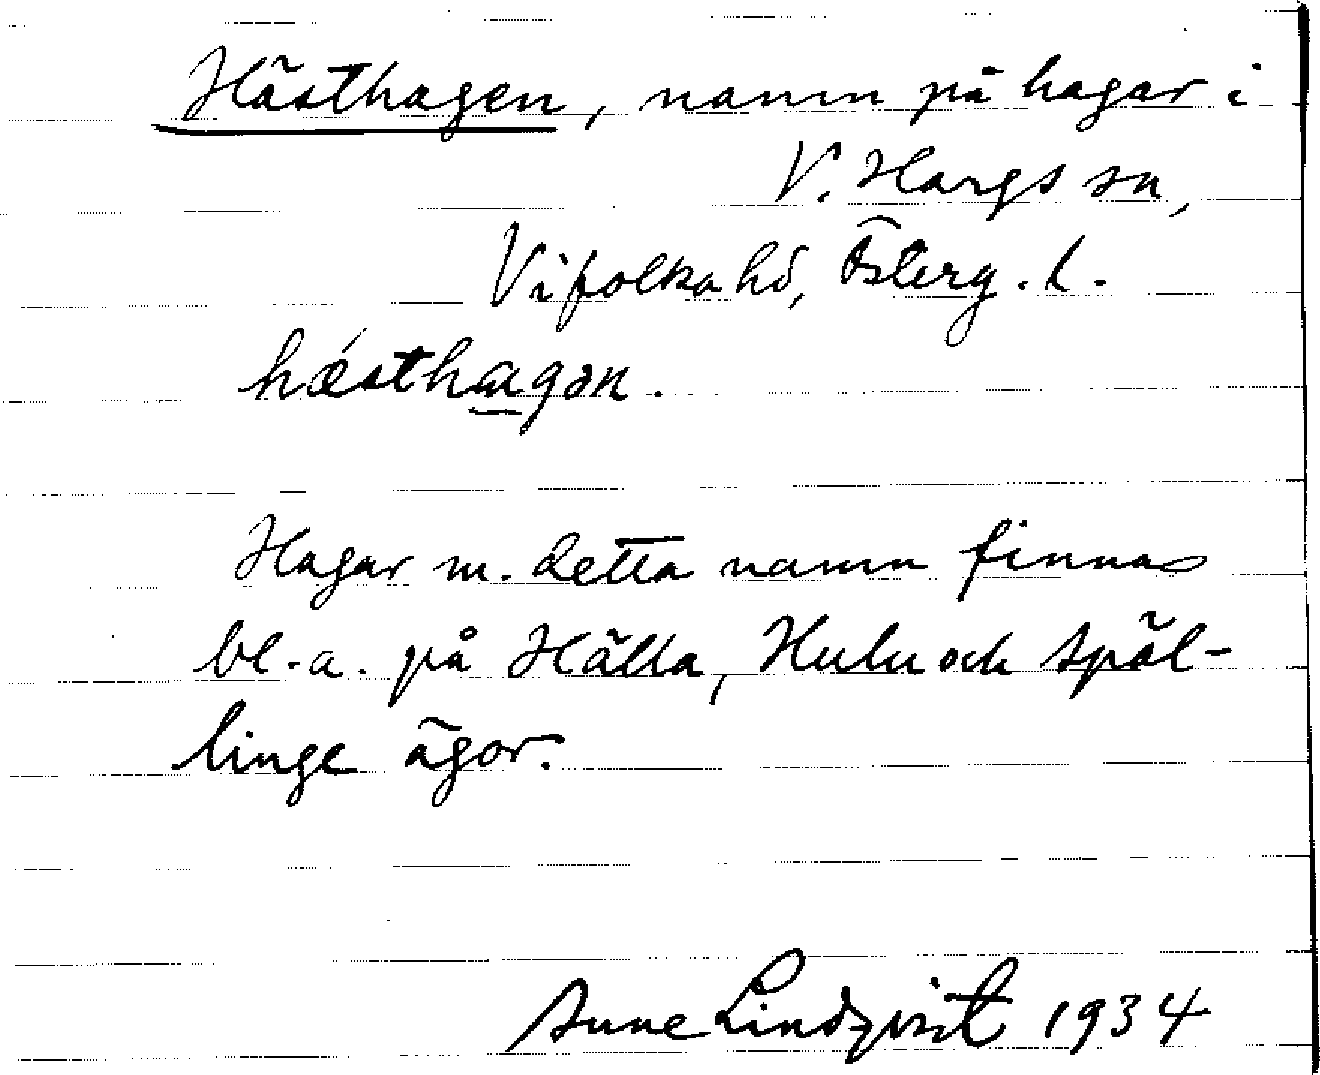 Hästhagen, namn på hagar i
V. Hargs sn,
Vifolka hd, Österg. l.
hǽsthagən.
Hagar m. detta namn finnas
bl.a. på Hälla, Hulu och Späl-
linge ägor.
Sune Lindqvist 1934